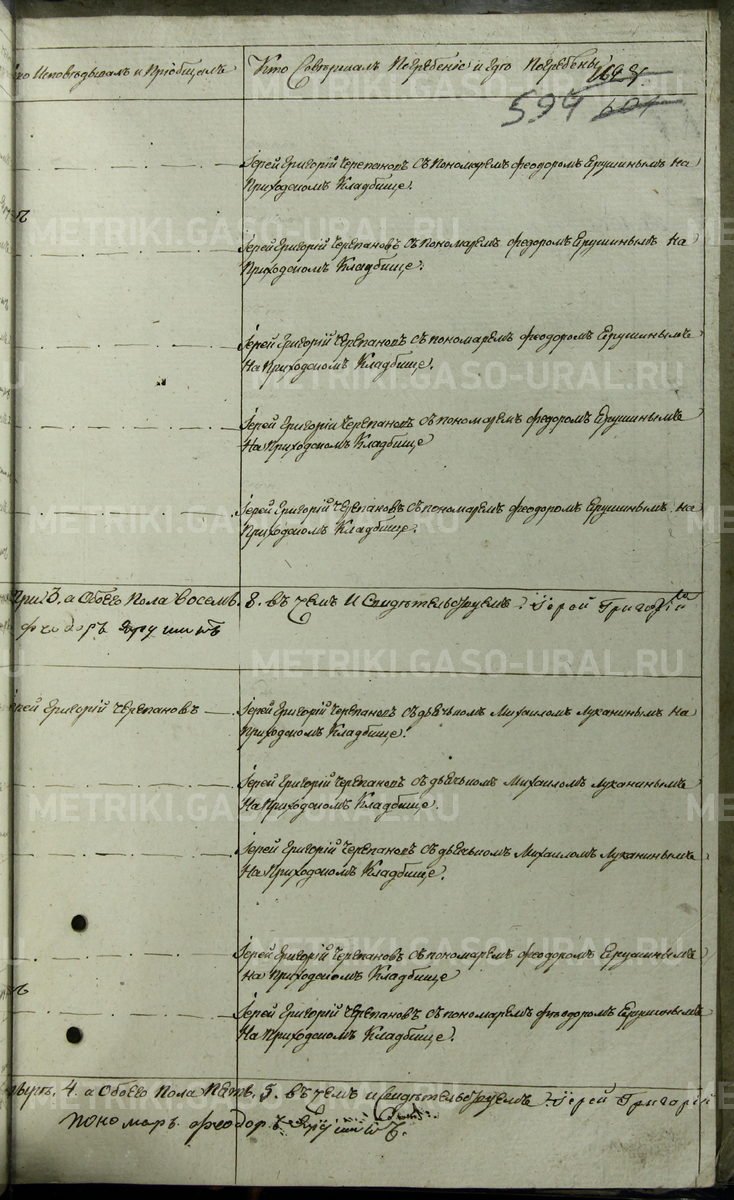 Исповѣдывалъ и Приобщалъ
Кто Совершалъ Погребенïе и гдѣ Погребены
594
Iерей Григорïй Черепановъ съ Пономаремъ Феодоромъ Ерушинымъ на
Приходскомъ Кладбище.
Iерей Григорïй Черепановъ съ Пономаремъ Федоромъ Ерушинымъ На
Приходскомъ Кладбище.
Iерей Григорïй Черепановъ съ пономаремъ Феодоромъ Ерушинымъ
На Приходскомъ Кладбище.
Iерей Григорïи Черепановъ съ пономаремъ Федоромъ Ерушинымъ
На Приходскомъ Кладбище
Iерей Григорïй Черепановъ съ пономаремъ Феодоромъ Ерушинымъ на
Приходскомъ Кладбище.
три 3. а Обоего Пола Восемь. 8. въ чемъ И Свидѣтельствуемъ Iерей Григорïй
Феодоръ Ерушинъ
Iерей Григорïй Черепановъ
Iерей Григорïй Черепановъ съ дьячкомъ Михаиломъ Луканинымъ На
Приходскомъ Кладбище.
Iерей Григорïй Черепановъ съ дьячкомъ Михаиломъ Луканинымъ
На Приходскомъ Кладбище.
Iерей Григорïй Черепановъ съ дьячкомъ Михаиломъ Луканинымъ
На Приходскомъ Кладбище.
Iерей Григорïй Черепановъ съ пономаремъ Феодоромъ Ерушинымъ
на Приходскомъ Кладбище
Iерей Григорïй Черепановъ съ пономаремъ Феодоромъ Ерушинымъ
На Приходскомъ Кладбище.
4. а Обоего Пола Пять. 5. въ чемъ и свидѣтельствуемъ Iерей Григорïй
пономарь Феодоръ Ерушинъ.
METRIKI.GASO-URAL.RU